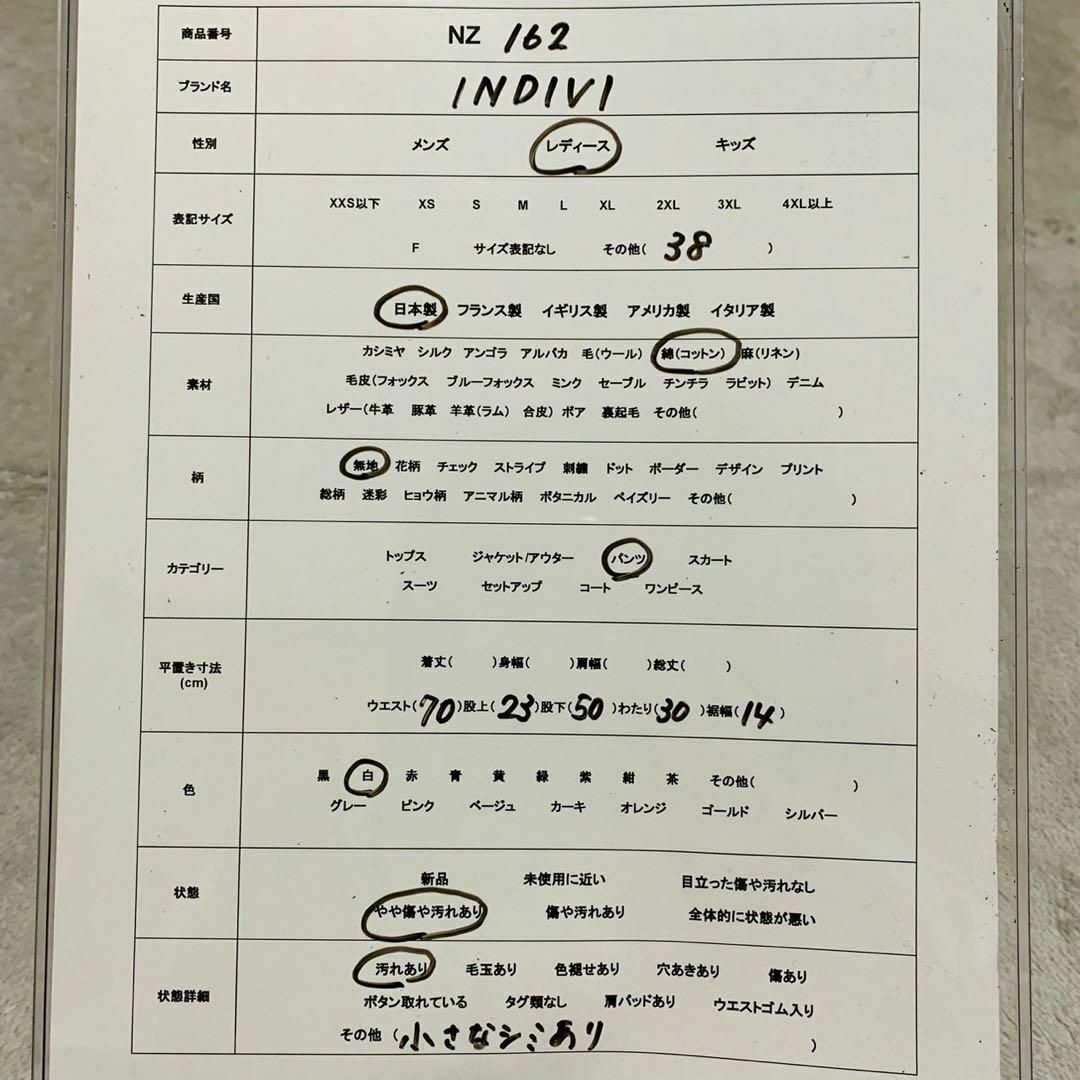 商品番号 NZ 162
ブランド名 INDIVI
性別 メンズ レディース キッズ
表記サイズ
XXS以下 XS S M L XL 2XL 3XL 4XL以上
F サイズ表記なし その他( 38 )
生産国 日本製 フランス製 イギリス製 アメリカ製 イタリア製
素材
カシミヤ シルク アンゴラ アルパカ 毛(ウール) 綿(コットン) 麻(リネン)
毛皮(フォックス ブルーフォックス ミンク セーブル チンチラ ラビット) デニム
レザー(牛革 豚革 羊革(ラム) 合皮) ボア 裏起毛 その他( )
柄
無地 花柄 チェック ストライプ 刺繍 ドット ボーダー デザイン プリント
総柄 迷彩 ヒョウ柄 アニマル柄 ボタニカル ペイズリー その他( )
カテゴリー
トップス ジャケット/アウター パンツ スカート
スーツ セットアップ コート ワンピース
平置き寸法
(cm)
着丈( )身幅( )肩幅( )総丈( )
ウエスト(70)股上(23)股下(50)わたり(30)裾幅(14)
色
黒 白 赤 青 黄 緑 紫 紺 茶 その他( )
グレー ピンク ベージュ カーキ オレンジ ゴールド シルバー
状態
新品 未使用に近い 目立った傷や汚れなし
やや傷や汚れあり 傷や汚れあり 全体的に状態が悪い
状態詳細
汚れあり 毛玉あり 色褪せあり 穴あきあり 傷あり
ボタン取れている タグ類なし 肩パッドあり ウエストゴム入り
その他 (小さなシミあり )